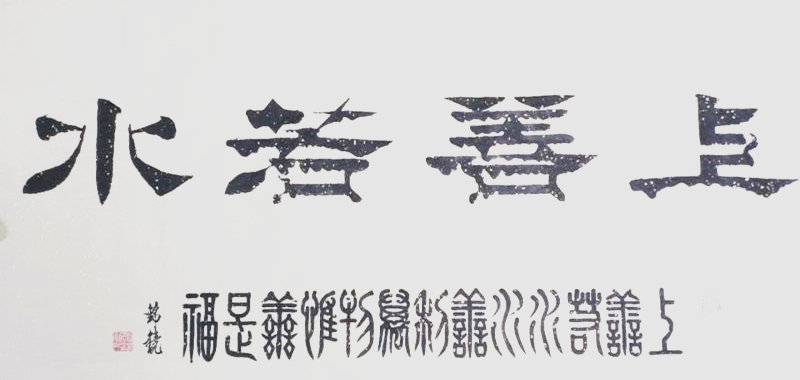 上善若水
上善若水水善利萬物惟善是福